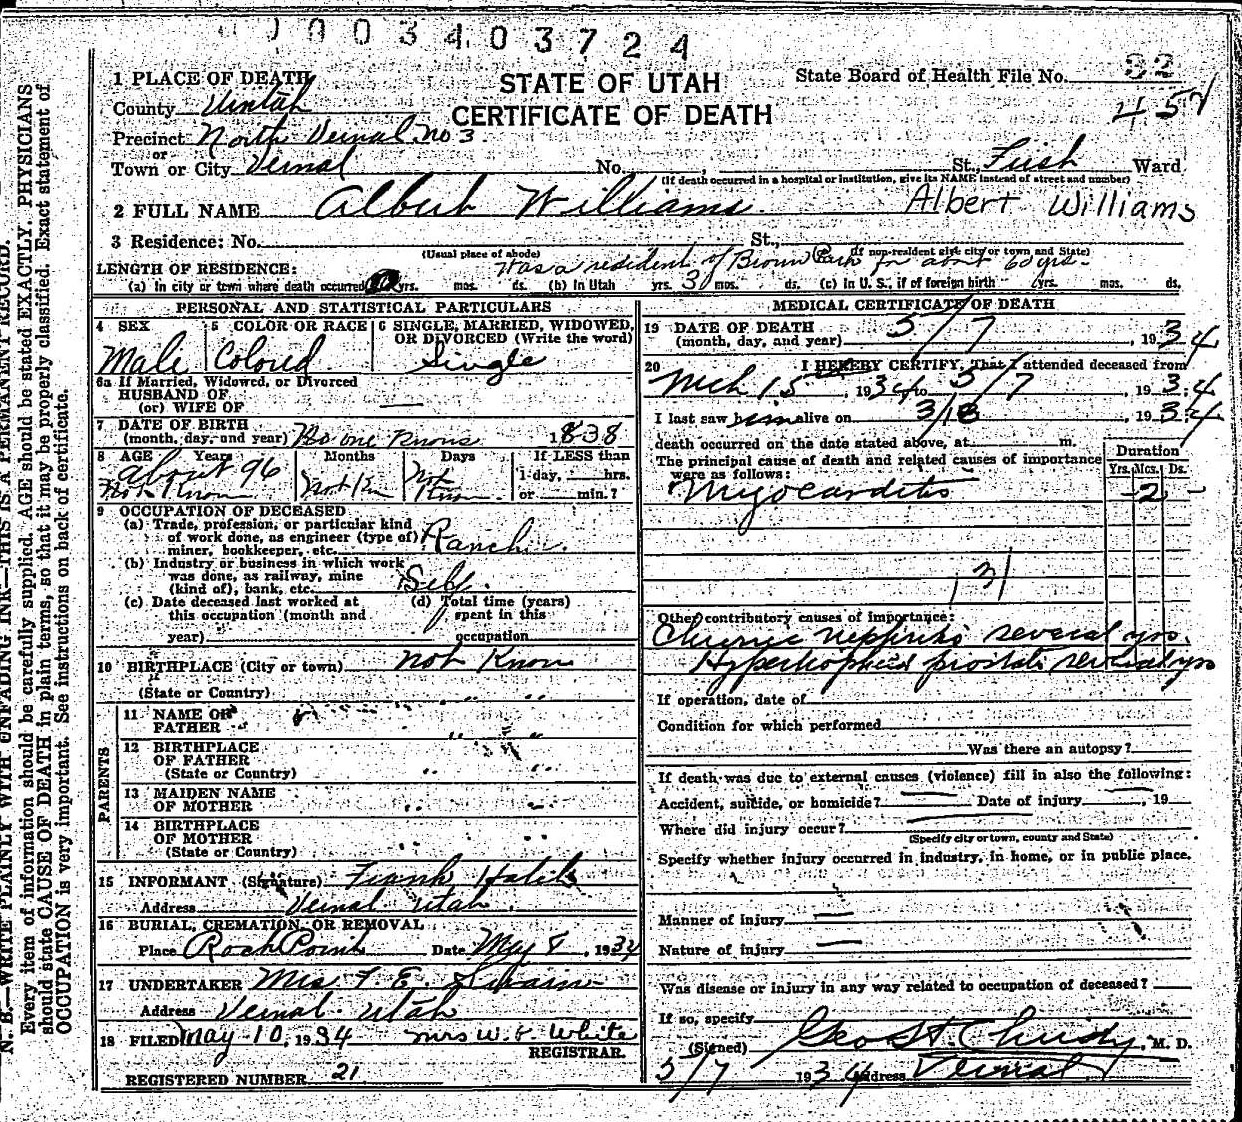 0003403724
STATE OF UTAH
CERTIFICATE OF DEATH
State Board of Health File No. 92
457
1 PLACE OF DEATH
County Uintah
Precinct North Vernal no 3.
or
Town or City Vernal No. , St., Ward
(If death occurred in a hospital or institution, give its NAME instead of street and number)
2 FULL NAME Albert Williams. Albert Williams
3 Residence: No. St.,
(Usual place of abode) (If non-resident give city or town and State)
Was a resident of Brown Park for about 60 yrs.
LENGTH OF RESIDENCE:
(a) In city or town where death occurred yrs. mos. ds. (b) In Utah yrs. 3 mos. ds. (c) In U. S., if of foreign birth yrs. mos. ds.
PERSONAL AND STATISTICAL PARTICULARS
4 SEX 5 COLOR OR RACE 6 SINGLE, MARRIED, WIDOWED, OR DIVORCED (Write the word)
Male Colored Single
6a If Married, Widowed, or Divorced
HUSBAND OF
(or) WIFE OF —
7 DATE OF BIRTH
(month, day, and year) No one Knows 1838
8 AGE Years Months Days If LESS than
about 96 1 day, hrs.
Not Known Not Kn Not Known. or min.?
9 OCCUPATION OF DECEASED
(a) Trade, profession, or particular kind
of work done, as engineer (type of)
miner, bookkeeper, etc. Ranch
(b) Industry or business in which work
was done, as railway, mine
(kind of), bank, etc. Self.
(c) Date deceased last worked at (d) Total time (years)
this occupation (month and spent in this
year) occupation
10 BIRTHPLACE (City or town) not Know
(State or Country) " "
PARENTS
11 NAME OF
FATHER " "
12 BIRTHPLACE
OF FATHER
(State or Country) " "
13 MAIDEN NAME
OF MOTHER " "
14 BIRTHPLACE
OF MOTHER
(State or Country) " "
15 INFORMANT (Signature) Frank
Address Vernal Utah.
16 BURIAL, CREMATION, OR REMOVAL
Place Rock Point Date May 8, 1934
17 UNDERTAKER Mrs F. E. Swain
Address Vernal Utah
18 FILED May 10, 1934 Mrs W. White
REGISTRAR.
REGISTERED NUMBER 21
MEDICAL CERTIFICATE OF DEATH
19 DATE OF DEATH
(month, day, and year) 5/7, 1934
20 I HEREBY CERTIFY, That I attended deceased from
Mch 15, 1934 to 5/7, 1934
I last saw him alive on 3/18, 1934
death occurred on the date stated above, at m.
The principal cause of death and related causes of importance
were as follows: Duration
Yrs. Mos. Ds.
Myocarditis - 2 -
131
Other contributory causes of importance:
Chronic nephritis several yrs.
Hypertrophied prostate several yrs
If operation, date of
Condition for which performed
Was there an autopsy?
If death was due to external causes (violence) fill in also the following:
Accident, suicide, or homicide? — Date of injury —, 19
Where did injury occur? —
(Specify city or town, county and State)
Specify whether injury occurred in industry, in home, or in public place.
Manner of injury —
Nature of injury —
Was disease or injury in any way related to occupation of deceased?
If so, specify
(Signed) Geo , M. D.
5/7 1934 Address Vernal
N. B.—WRITE PLAINLY WITH UNFADING INK—THIS IS A PERMANENT RECORD.
Every item of information should be carefully supplied. AGE should be stated EXACTLY. PHYSICIANS
should state CAUSE OF DEATH in plain terms, so that it may be properly classified. Exact statement of
OCCUPATION is very important. See instructions on back of certificate.